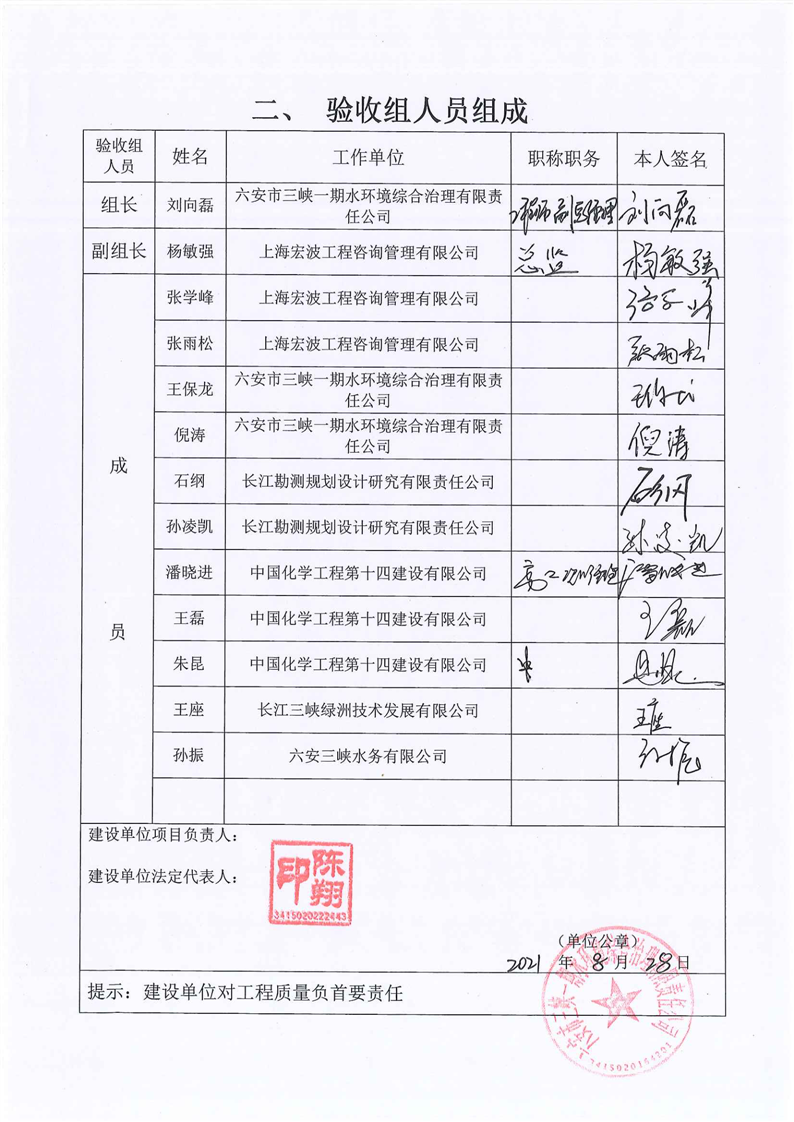 二、 验收组人员组成
验收组
人员
姓名
工作单位
职称职务
本人签名
组长
刘向磊
六安市三峡一期水环境综合治理有限责
任公司
刘向磊
副组长
杨敏强
上海宏波工程咨询管理有限公司
总监
杨敏强
成
员
张学峰
上海宏波工程咨询管理有限公司
张学峰
张雨松
上海宏波工程咨询管理有限公司
张雨松
王保龙
六安市三峡一期水环境综合治理有限责
任公司
倪涛
六安市三峡一期水环境综合治理有限责
任公司
倪涛
石纲
长江勘测规划设计研究有限责任公司
孙凌凯
长江勘测规划设计研究有限责任公司
孙凌凯
潘晓进
中国化学工程第十四建设有限公司
王磊
中国化学工程第十四建设有限公司
王磊
朱昆
中国化学工程第十四建设有限公司
王座
长江三峡绿洲技术发展有限公司
王座
孙振
六安三峡水务有限公司
孙振
建设单位项目负责人：
建设单位法定代表人：
陈翔印
3415020222443
（单位公章）
2021 年 8 月 28 日
六安市三峡一期水环境综合治理有限责任公司
3415020154201
提示：建设单位对工程质量负首要责任